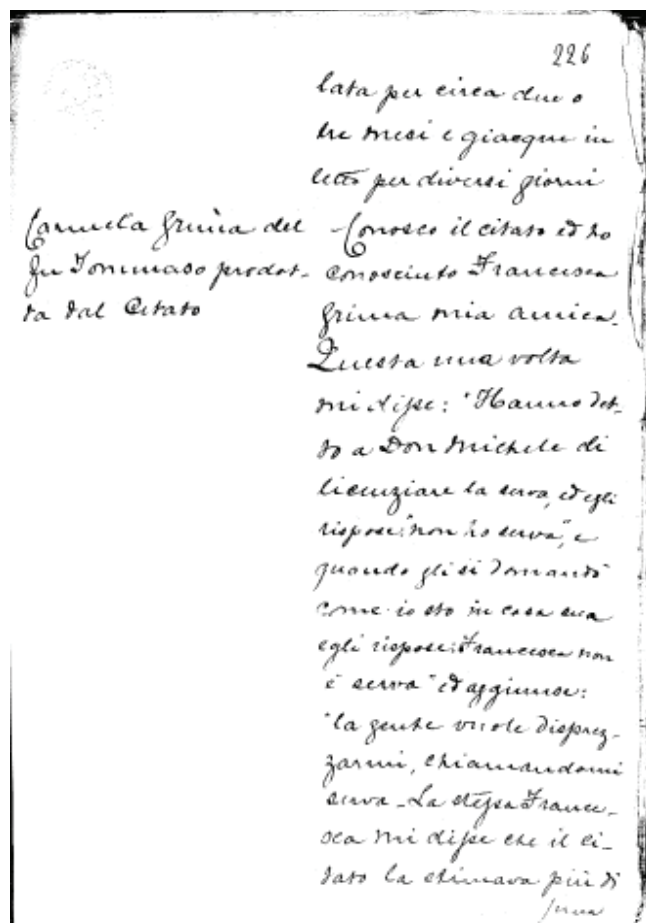 226
lata per circa due o
tre mesi e giacque in
letto per diversi giorni
Carmela Grima del
fu Tommaso prodot-
ta dal Citato
Conosco il citato ed ho
conosciuto Francesca
Grima mia amica.
Questa una volta
mi disse: "Hanno det-
to a Don Michele di
licenziare la serva, ed egli
rispose: "non ho serva", e
quando gli si domandò
come io sto in casa sua
egli rispose: Francesca non
è serva" ed aggiunse:
"la gente vuole disprez-
zarmi, chiamandomi
serva - La stessa France-
sca mi disse che il ci-
tato la stimava più di